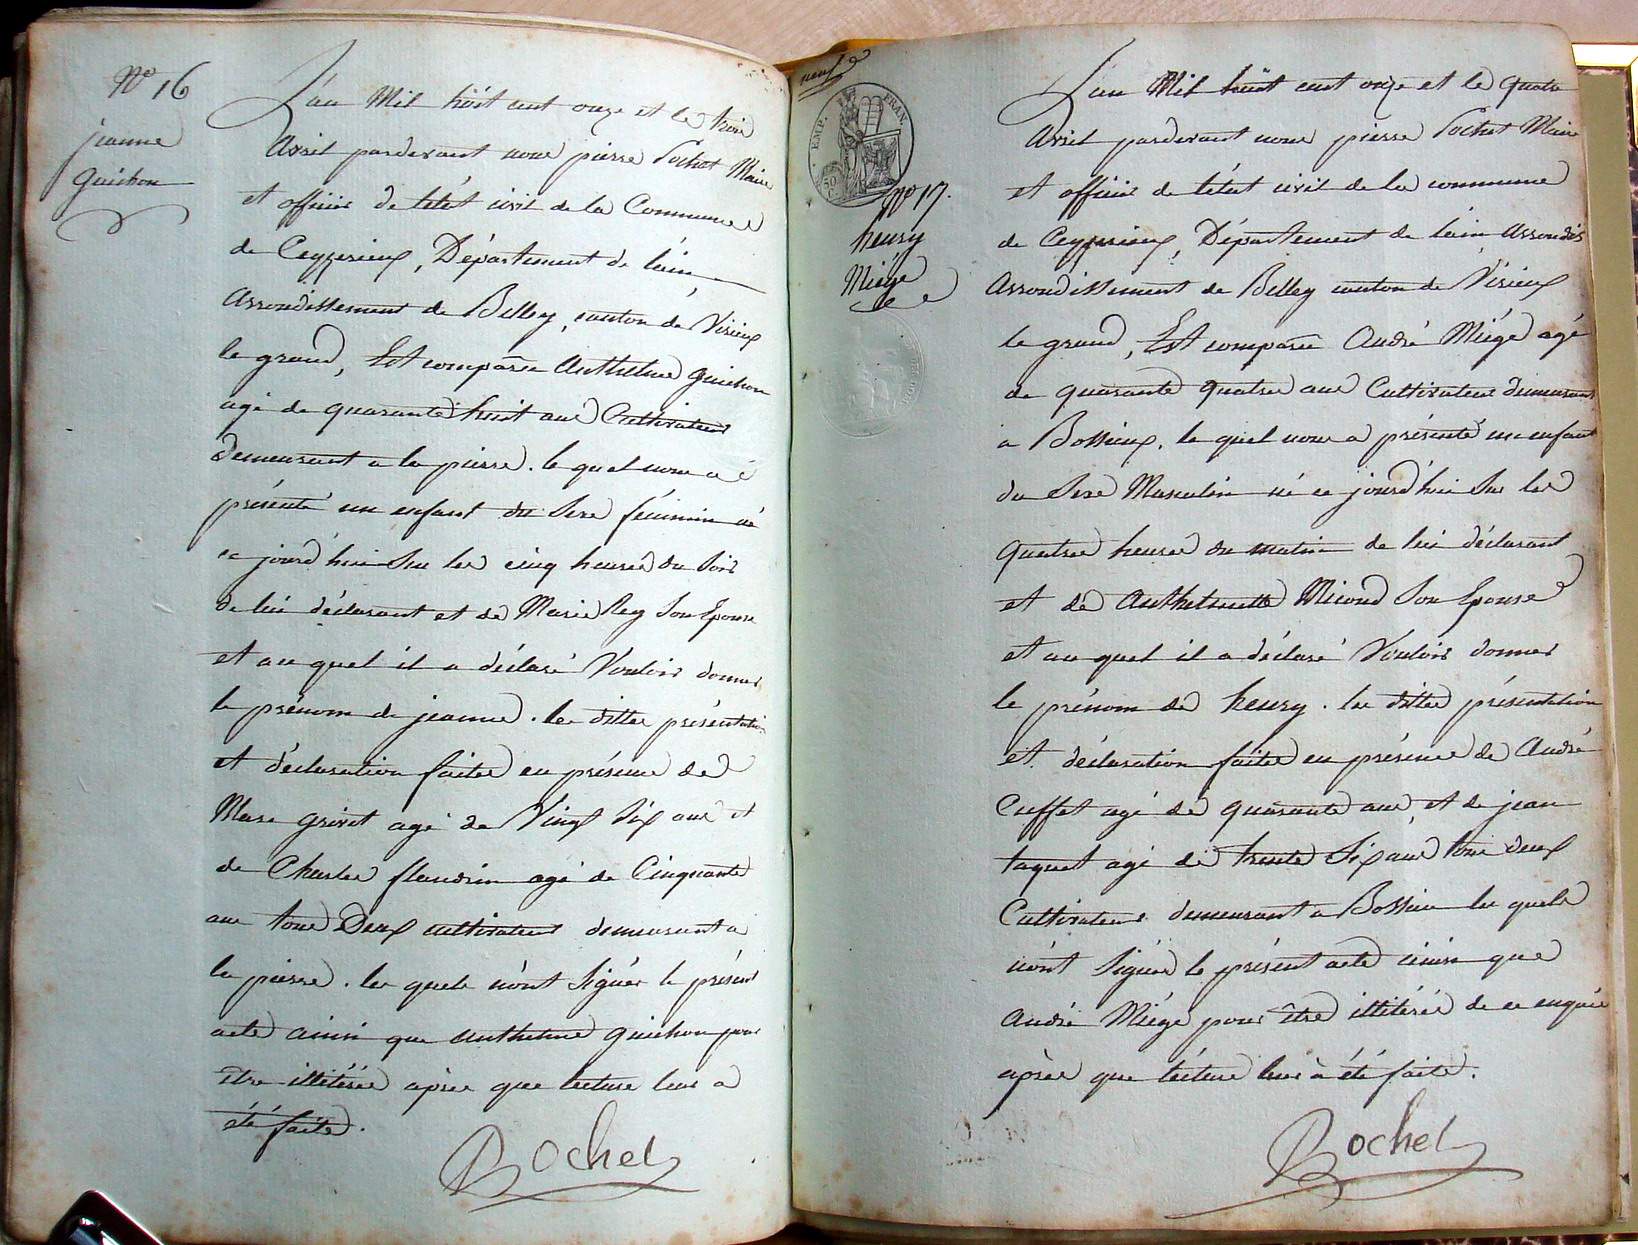 No 16
jeanne
Guichon
L'an Mil huit cent onze et le trois
Avril pardevant nous pierre Rochet Maire
et officier de létat civil de la Commune
de Ceyzerieux, Département de l'ain
Arrondissement de Belley, canton de Virieux
le grand, Est comparu Anthelme Guichon
agé de quarante huit ans Cultivateur
demeurant a la pierre. le quel nous a
présenté un enfant du Sexe féminin né
ce jourd'hui Sur les cinq heures du Soir
de lui déclarant et de Marie Rey Son Epouse
et au quel il a déclaré Vouloir donner
le prénom de jeanne. les dittes présentation
et déclaration faites en présence de
Marc grivet agé de Vingt Six ans et
de Charles flandrin agé de Cinquante
ans tous Deux cultivateurs demeurant a
la pierre. les quels n'ont Signés le présent
acte ainsi que Anthelme Guichon pour
être illitérés après que lecture leur a
été faite.
Rochet
neuf
EMP. FRAN.
50 C
No 17.
henry
Miége
L'an Mil huit cent onze et le quatre
Avril pardevant nous pierre Rochet Maire
et officier de létat civil de la commune
de Ceyzerieux, Département de lain Arrondis
Arrondissement de Belley canton de Virieux
le grand, Est comparu André Miége agé
de quarante quatre ans Cultivateur demeurant
a Bossieux. le quel nous a présenté un enfant
du Sexe Masculin né ce jourd'hui Sur les
quatre heures du matin de lui déclarant
et de Anthelmette Micoud Son Epouse
et au quel il a déclaré Vouloir donner
le prénom de henry. les dittes présentation
et déclaration faites en présence de André
Cuffet agé de quarante ans, et de jean
taquet agé de trente Six ans tous deux
Cultivateurs demeurant a Bossieu les quels
n'ont Signés le présent acte ainsi que
André Miége pour être illitérés de ce enquis
après que lécture leur à été faite.
Rochet